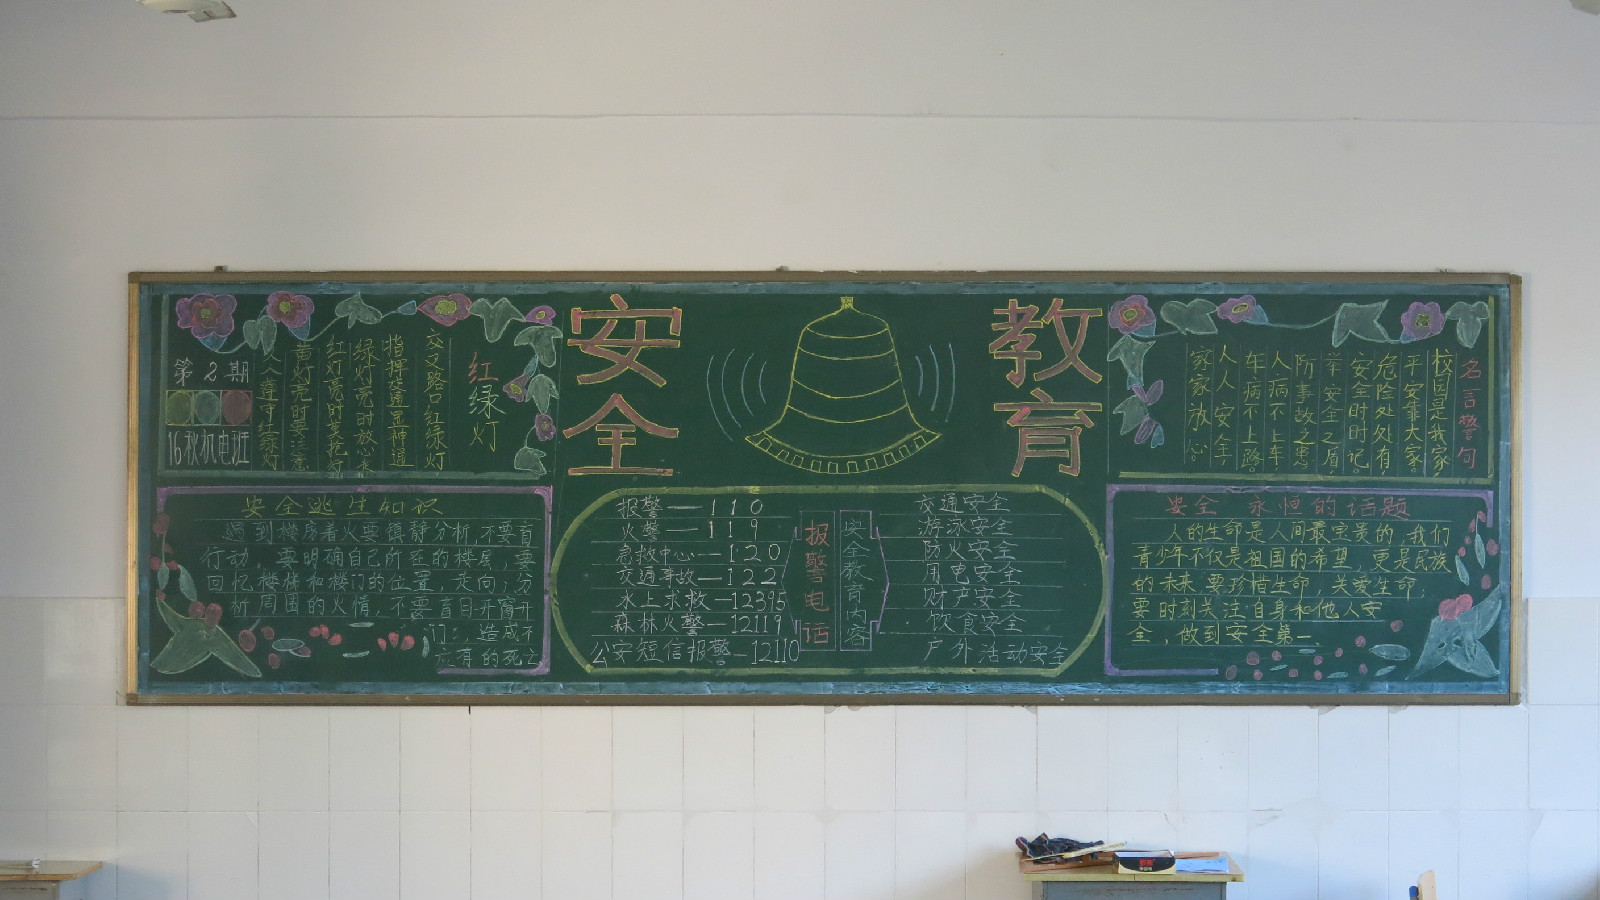 安全
教育
第2期
16秋机电班
红绿灯
交叉路口红绿灯
指挥交通显神通
绿灯亮时放心走
红灯亮时要
黄灯亮时要注意
人人遵守红绿灯
名言警句
校园是我家
平安靠大家
危险处处有
安全时时记
举安全之盾
防事故之患
人病不上车
车病不上路
人人安全,
家家放心。
安全逃生知识
遇到楼房着火要镇静分析,不要盲
行动,要明确自己所在的楼层,要
回忆楼梯和楼门的位置,走向,分
析周围的火情,不要盲目开窗开
门,造成不
应有的死亡
报警—110
火警—119
急救中心—120
交通事故—122
水上求救—12395
森林火警—12119
公安短信报警—12110
报警电话
安全教育内容
交通安全
游泳安全
防火安全
用电安全
财产安全
饮食安全
户外活动安全
安全 永恒的话题
人的生命是人间最宝贵的,我们
青少年不仅是祖国的希望,更是民族
的未来,要珍惜生命,关爱生命,
要时刻关注自身和他人安
全,做到安全第一